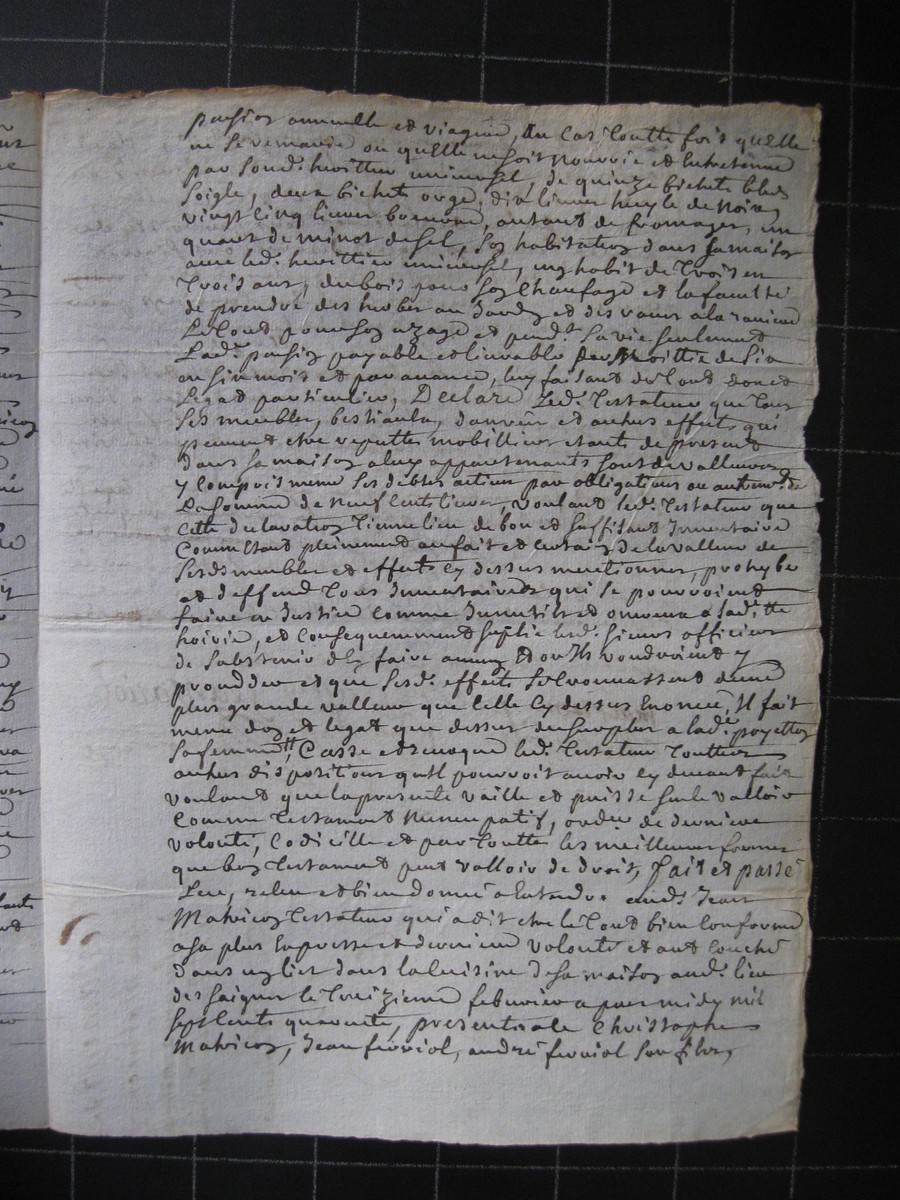 pansion annuelle et viagere, En cas toutte fois quelle
ne se remarie ou quelle ne soit nourrie et Entretenue
par sond. heritier universel, de quinze bichets bled
Soigle, deux bichets orge, dix livres huyle de noix,
vingt cinq livres beurre, autant de fromages, un
quart de minot de sel, son habitation dans sa maison
avec led. heritier universel, ung habit de trois en
trois ans, du bois pour son chaufage et la faculté
de prendre des herbes au jardin et des raves a la raviere
Le tout pour son uzage et pend.t sa vie seulement
Lad. pansion payable et livrable par moittié de six
en six mois et par avance, luy faisant du tout don et
legat particulier, Declare led. testateur que tous
ses meubles, bestiaulx, danrées et autres effects qui
peuvent etre reputtes mobilliers etants de present
dans sa maison a luy appartenants sont de valleur
y compris meme ses debtes actives par obligations ou autrem.t de
La somme de neuf cents livres, voulant led. testateur que
cette declaration tienne lieu de bon et suffisant Inventaire
Consultant pleinement au fait et certain de la valleur de
sesds meubles et effects cy dessus mentionnes, prohybe
et deffend tous Inventaires qui se pourroient
faire en justice comme Innutils et onereux a sa ditte
hoirie, et consequemment suplie lesd. sieurs officiers
de sabstenir dEn faire aucun et ou Ils voudroient y
proceder et que sesd. effects se trouvassent dune
plus grande valleur que celle cy dessus Enoncée, Il fait
meme don et legat que dessus du surplus a lad. poyetton
sa femme, Casse et revoque led. testateur touttes
autres dispositions quil pourroit avoir cy devant fait
voulant que la presente vaille et puisse seule valloir
comme testament nuncupatif, ordre de derniere
volonté, Codicille et par touttes les meilleures formes
que bon testament peut valloir de droit, fait et passé
Leu, releu et bien donné a Entendre aud. Jean
Matricon testateur qui a dit etre le tout bien conforme
a sa plus Expresse et derniere volonté etant couché
dans un lict dans la cuisine de sa maison aud. lieu
des saignes le treizieme febvrier apres midy mil
sept cents quarente, presents a ce Christophe
Matricon, Jean ferriol, andré ferriol son fils,